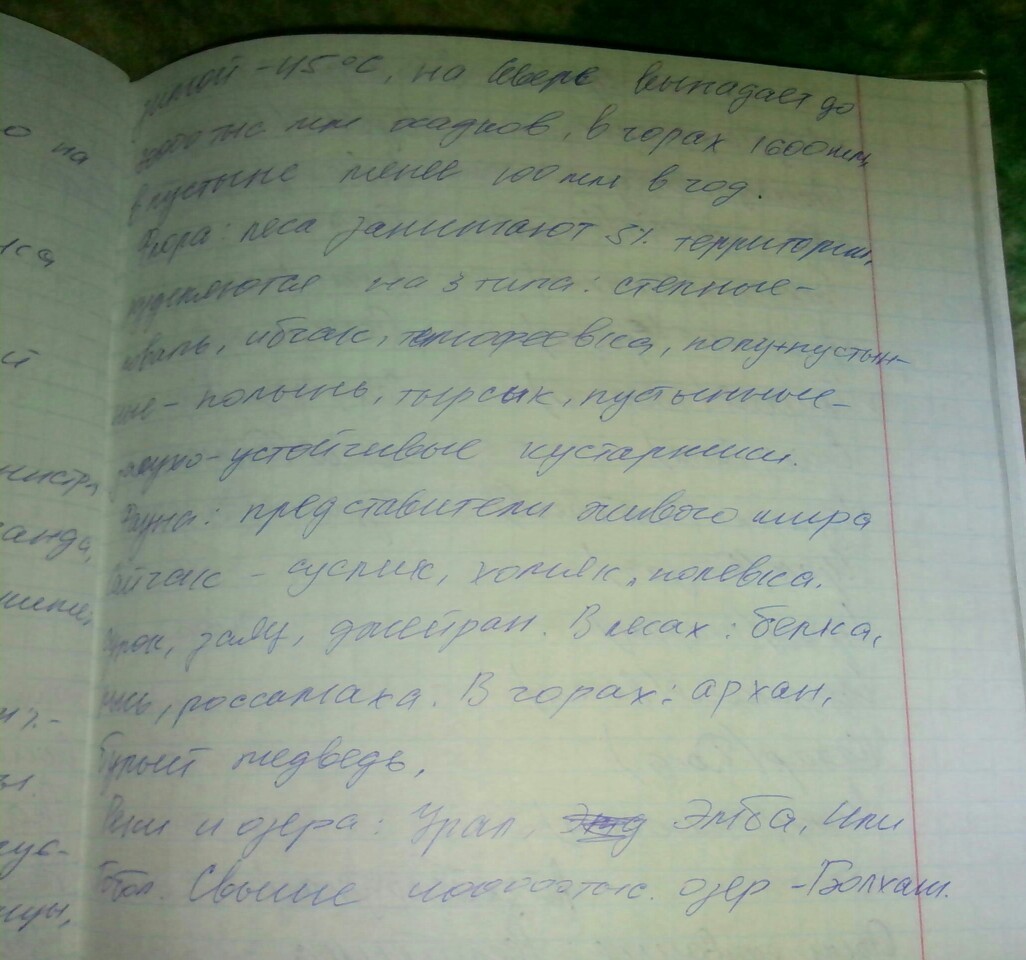 зимой -45°C, на севере выпадает до
тыс мм осадков, в горах 1600мм,
в пустыне менее 100мм в год.
Флора: леса занимают 5% территории,
на 3 типа: степные-
ковыль, тимофеевка, полупустын-
ные - полынь, тырсык, пустынные-
засухо-устойчивые кустарники.
Фауна: представители живого мира
- суслик, хомяк, полевка.
Сурок, заяц, джейран. В лесах: белка,
рысь, россамаха. В горах: архан,
бурый медведь,
Реки и озера: Урал, Эмба, Или
Тобол. Свыше озер - Балхаш.
о на
й
анда,